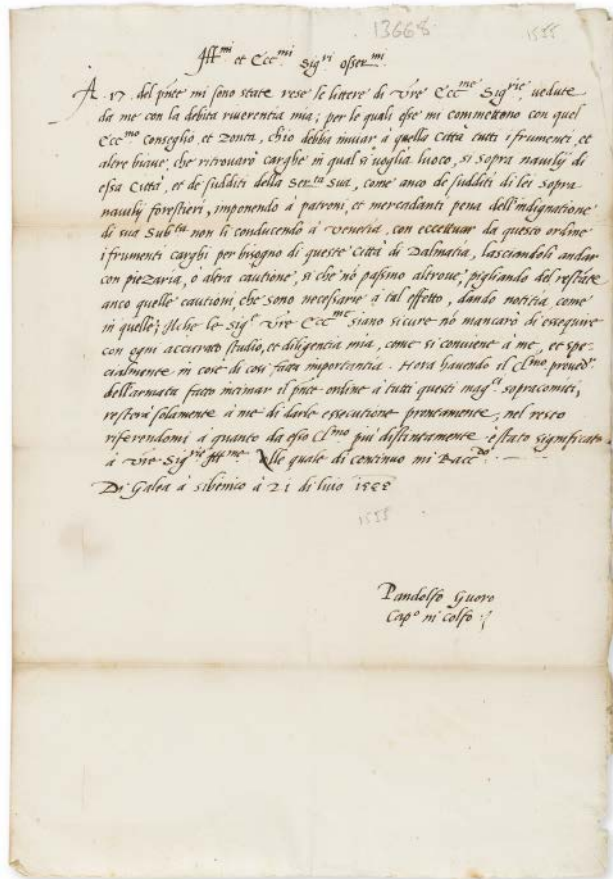 13668
1555
Ill.mi et Ecc.mi Sig.ri osser.mi
A 17. del pnte mi sono state rese le littere di Vre Ecc.me Sig.rie, vedute
da me con la debita riverentia mia; per le quali esse mi commettono con quel
Ecc.mo Conseglio, et Zonta, ch'io debba inviar à quella Città tutti i frumenti, et
altre biave, che ritrovarò carghe in qual si voglia luoco, si sopra navilij di
essa Città, et de sudditi della Ser.ta Sua, come anco de sudditi di lei sopra
navilij forestieri, imponendo à patroni, et mercadanti pena dell'indignatione
di sua Sub.ta non li conducendo à Venetia, con eccettuar da questo ordine
i frumenti carghi per bisogno di queste Città di Dalmatia, lasciandoli andar
con piezaria, ò altra cautione, si che nō passino altrove, pigliando del restate
anco quelle cautioni, che sono necessarie à tal effetto, dando notitia, come
in quelle; Ilche le Sig.e Vre Ecc.me siano sicure nō mancarò di essequire
con ogni accurato studio, et diligentia mia, come si conviene à me, et spe-
cialmente in cose di cosi fatta importantia. Hora havendo il Cl.mo proved.r
dell'armata fatto intimar il pnte ordine à tutti questi mag.ci sopracomiti,
resterà solamente à me di darle essecutione prontamente, nel resto
riferendomi à quanto da esso Cl.mo più distintamente è stato significato
à Vre Sig.rie Ill.me. Alle quale di continuo mi Racc.do
Di Galea à Sibenico à 21 di luio 1555
1555
Pandolfo Guoro
Cap.o in Colfo